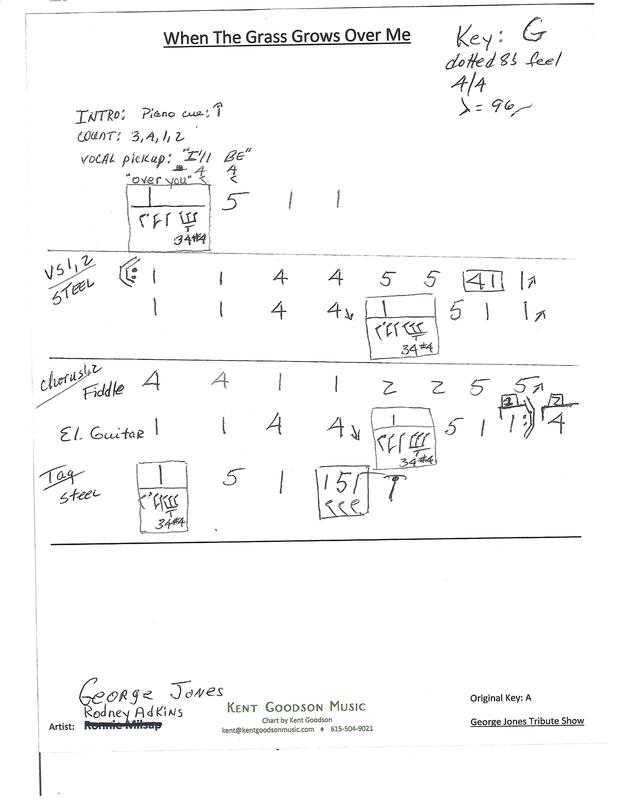 When The Grass Grows Over Me
Key: G
dotted 8's feel
4/4
= 96
INTRO: Piano cue: ↑
COUNT: 3, 4, 1, 2
VOCAL pickup: "I'll BE"
"over you" 4 4
1 5 1 1
34#4
VS 1, 2 1 1 4 4 5 5 41 1
STEEL 1 1 4 4 1 5 1 1
34#4
Chorus 1, 2
Fiddle 4 4 1 1 2 2 5 5
1 2
El. Guitar 1 1 4 4 1 5 1 1 4
34#4
Tag
Steel 1 5 1 151 1
34#4
George Jones
Rodney Adkins
Artist: Ronnie Milsap
Kent Goodson Music
Chart by Kent Goodson
kent@kentgoodsonmusic.com ♦ 615-504-9021
Original Key: A
George Jones Tribute Show